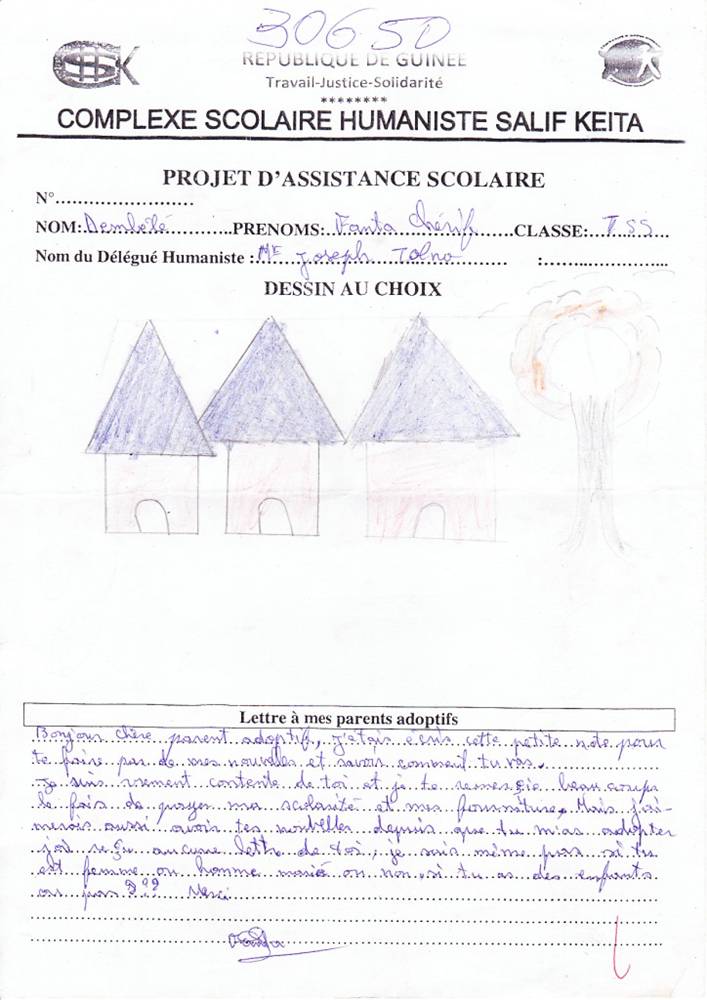 30650
REPUBLIQUE DE GUINEE
Travail-Justice-Solidarité
********
COMPLEXE SCOLAIRE HUMANISTE SALIF KEITA
PROJET D'ASSISTANCE SCOLAIRE
N°........................
NOM: Dembélé PRENOMS: Fanta Chérif CLASSE: TSS
Nom du Délégué Humaniste : Mr Joseph Tolno :
DESSIN AU CHOIX
Lettre à mes parents adoptifs
Bonjour chère parent adoptif, j'etais écris cette petite note pour
te faire par de mes nouvelles et savoir comment tu vas.
Je suis vrement contente de toi et je te remercie beaucoups
le fais de payer ma scolarité et mes fournitures. Mais j'ai-
merais aussi avoir tes nouvelles depuis que tu m'as adopter
j'ai reçu aucune lettre de toi, je sais même pas si tu
est femme ou homme marié ou non si tu as des enfants
ou pas ??? Merci